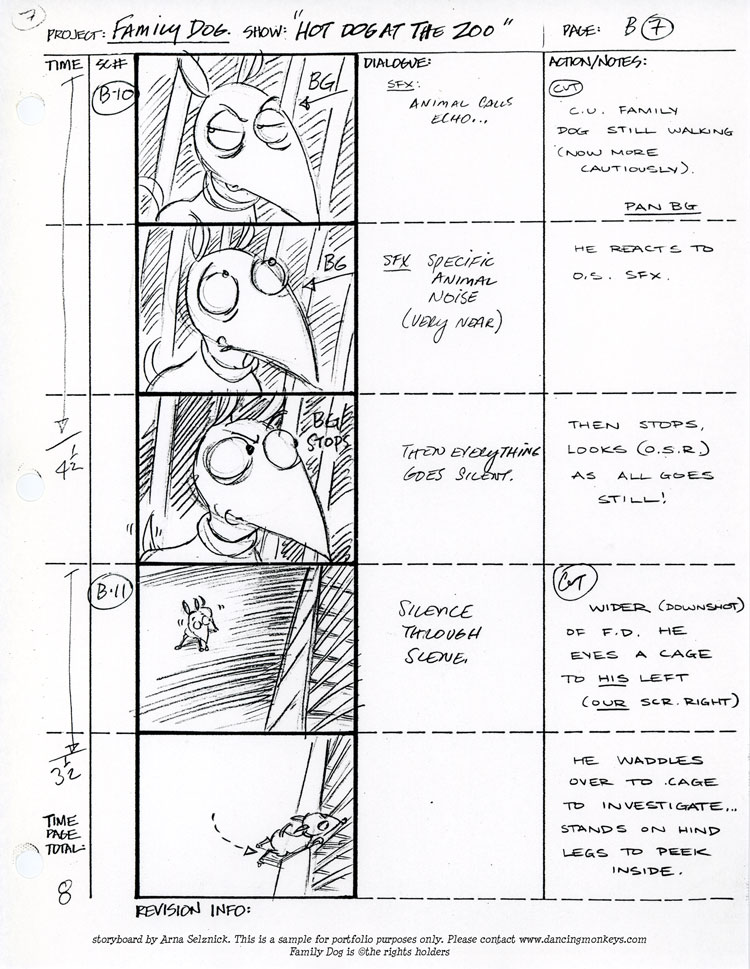 7
PROJECT: FAMILY DOG. SHOW: "HOT DOG AT THE ZOO" PAGE: B 7
TIME SC# DIALOGUE: ACTION/NOTES:
B-10
BG
SFX:
ANIMAL CALLS
ECHO...
CUT
C.U. FAMILY
DOG STILL WALKING
(NOW MORE
CAUTIOUSLY).
PAN BG
BG
SFX SPECIFIC
ANIMAL
NOISE
(VERY NEAR)
HE REACTS TO
O.S. SFX.
4 1/2
BG
STOPS
THEN EVERYTHING
GOES SILENT.
THEN STOPS,
LOOKS (O.S.R.)
AS ALL GOES
STILL!
B-11
SILENCE
THROUGH
SCENE.
CUT
WIDER (DOWNSHOT)
OF F.D. HE
EYES A CAGE
TO HIS LEFT
(OUR SCR. RIGHT)
3 1/2
HE WADDLES
OVER TO CAGE
TO INVESTIGATE...
STANDS ON HIND
LEGS TO PEEK
INSIDE.
TIME
PAGE
TOTAL:
8
REVISION INFO:
storyboard by Arna Selznick. This is a sample for portfolio purposes only. Please contact www.dancingmonkeys.com
Family Dog is ©the rights holders